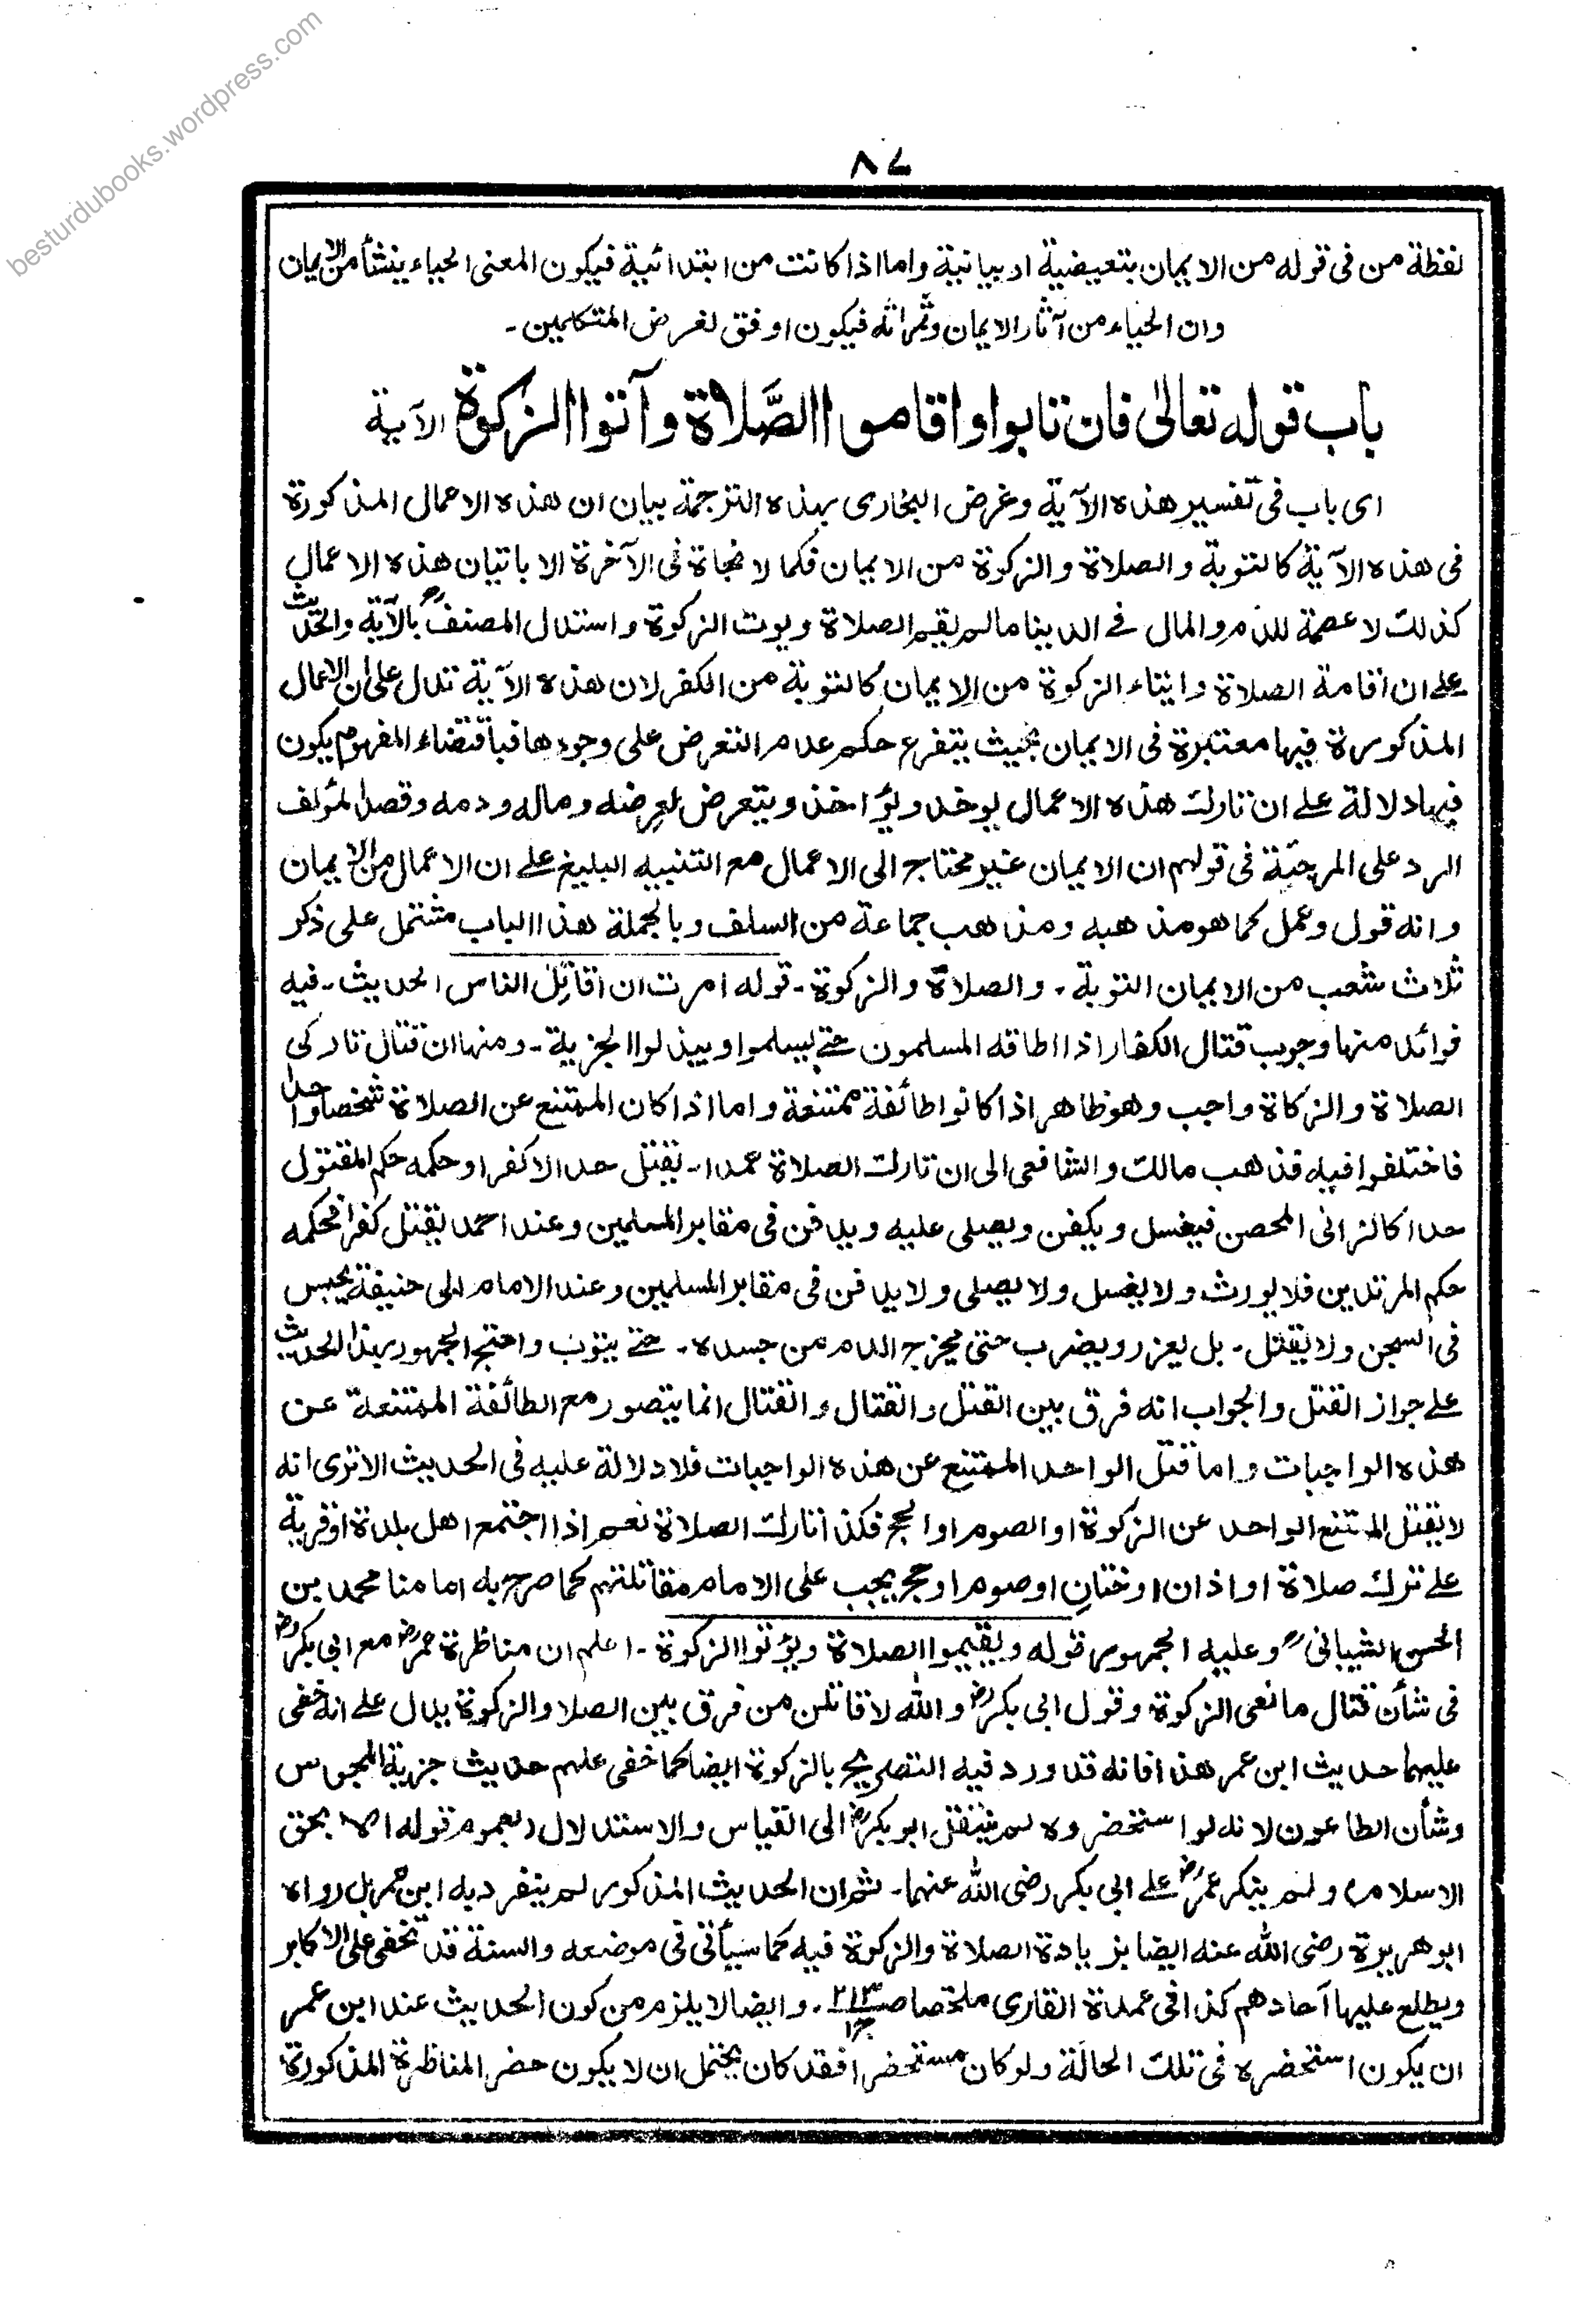 besturdubooks.wordpress.com
٨٧
لفظة من فى قوله من الايمان بتعيضية او بيانية واما اذا كانت من ابتدائية فيكون المعنى الحياء ينشأ من الايمان
وان الحياء من آثار الايمان وثمراته فيكون اوفق لغرض المتكلمين۔
باب قوله تعالىٰ فان تابوا واقاموا الصَّلاة وآتوا الزكوة الآية
اى باب فى تفسير هذه الآية وغرض البخارى بهذه الترجمة بيان ان هذه الاعمال المذكورة
فى هذه الآية كالتوبة والصلاة والزكوة من الايمان فكما لا نجاة فى الآخرة الا باتيان هذه الاعمال
كذلك لا عصمة للدم والمال فے الدينا مالم يقيم الصلاة ويوت الزكوة واستدل المصنفؒ بالآية والحديث
علے ان اقامة الصلاة وايتاء الزكوة من الايمان كالتوبة من الكفر لان هذه الآية تدل على ان الاعمال
المذكورة فيها معتبرة فى الايمان بحيث يتفرع حكم عدم التعرض على وجودها فباقتضاء المفهوم يكون
فيها دلالة علے ان تارك هذه الاعمال يوخد ويؤاخذ ويتعرض لعرضه وماله ودمه وقصد المؤلف
الرد على المرجئة فى قولهم ان الايمان غير محتاج الى الاعمال مع التنبيه البليغ علے ان الاعمال من الايمان
وانه قول وعمل كما هو مذهبه ومذهب جماعة من السلف وبالجملة هذا الباب مشتمل على ذكر
ثلاث شعب من الايمان التوبة، والصلاة والزكوة۔ قوله امرت ان اقاتل الناس الحديث۔ فيه
فوائد منها وجوب قتال الكفار اذا اطاقه المسلمون حتے يسلموا ويبذلوا الجزية۔ ومنها ان قتال تاركى
الصلاة والزكاة واجب وهو ظاهر اذا كانوا طائفة ممتنعة واما اذا كان الممتنع عن الصلاة شخصا واحدا
فاختلفوا فيه فذهب مالك والشافعى الى ان تارك الصلاة عمدا۔ يقتل حدا لا كفرا وحكمه حكم المقتول
حدا كالزانى المحصن فيغسل ويكفن ويصلى عليه ويدفن فى مقابر المسلمين وعند احمد يقتل كفرا فحكمه
حكم المرتدين فلا يورث ولا يغسل ولا يصلى ولا يدفن فى مقابر المسلمين وعند الامام ابى حنيفة يحبس
فى السجن ولا يقتل۔ بل يعزر ويضرب حتى يخرج الدم من جسده۔ حتے يتوب واحتج الجهور بهذا الحديث
علے جواز القتل والجواب انه فرق بين القتل والقتال والقتال انما يتصور مع الطائفة الممتنعة عن
هذه الواجبات واما قتل الواحد الممتنع عن هذه الواجبات فلا دلالة عليه فى الحديث الا ترى انه
لا يقتل الممتنع الواحد عن الزكوة او الصوم او الحج فكذا تارك الصلاة نعم اذا اجتمع اهل بلدة او قرية
علے ترك صلاة او اذان او ختان او صوم او حج يجب على الامام مقاتلتهم كما صرح به امامنا محمد بن
الحسن الشيبانىؒ وعليه الجمهور قوله ويقيموا الصلاة ويؤتوا الزكوة۔ اعلم ان مناظرة عمرؓ مع ابى بكرؓ
فى شأن قتال مانعى الزكوة وقول ابى بكرؓ والله لاقاتلن من فرق بين الصلا والزكوة يدل علے انه خفى
عليهما حديث ابن عمر هذا فانه قد ورد فيه التصريح بالزكوة ايضا كما خفى عليهم حديث جزية المجوس
وشأن الطاعون لانه لو استحضروه لم ينتقل ابوبكرؓ الى القياس والاستدلال بعموم قوله الا بحق
الاسلام) ولم ينكر عمرؓ علے ابى بكر رضى الله عنهما۔ ثم ان الحديث المذكور لم يتفرد به ابن عمر بل رواه
ابو هريرة رضى الله عنه ايضا بزيادة الصلاة والزكوة فيه كما سيأتى فى موضعه والسنة قد تخفى على الاكابر
ويطلع عليها آحادهم كذا فى عمدة القارى ملخصا صـ ٢١٣ ج١. وايضا لا يلزم من كون الحديث عند ابن عمر
ان يكون استحضره فى تلك الحالة ولو كان مستحضرا فقد كان يحتمل ان لا يكون حضر المناظرة المذكورة